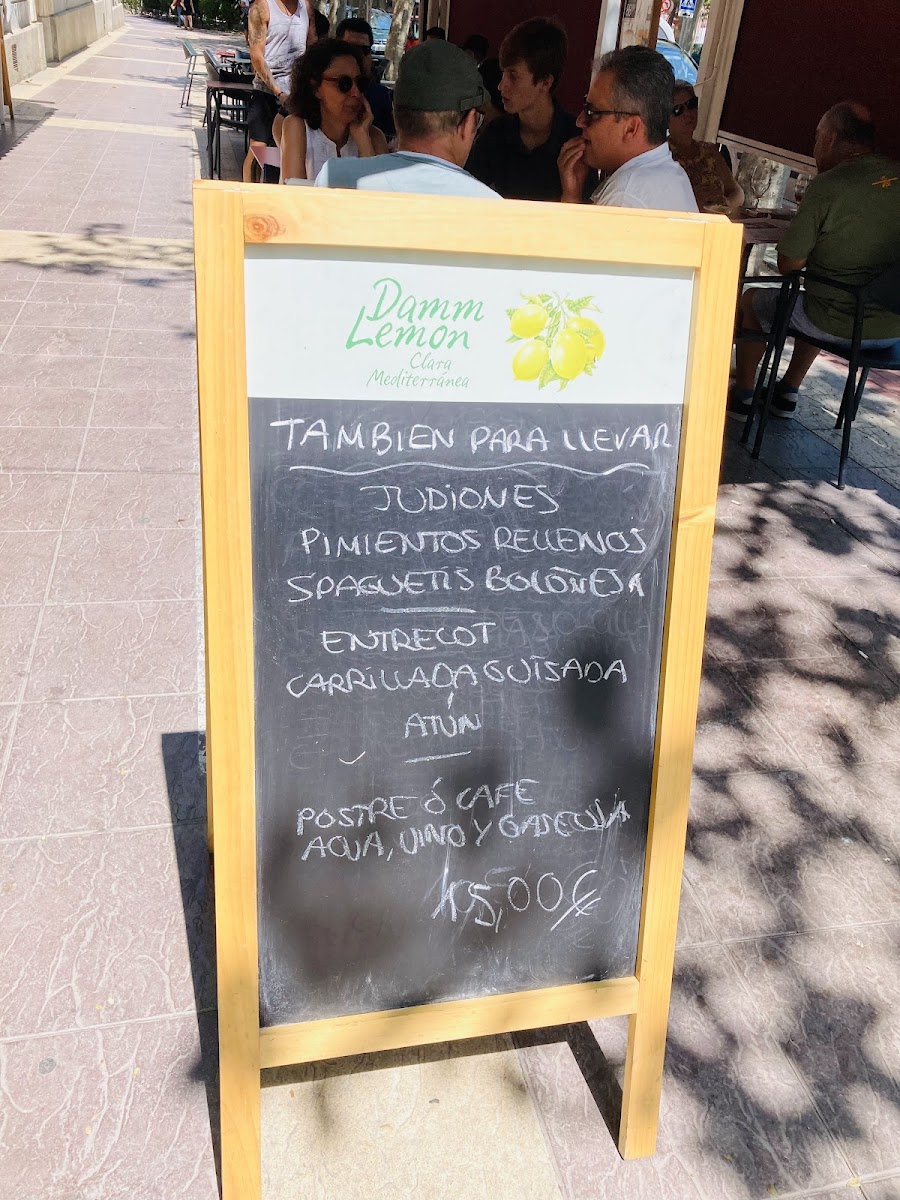 Damm
Lemon
Clara
Mediterránea
TAMBIEN PARA LLEVAR
JUDIONES
PIMIENTOS RELLENOS
SPAGUETIS BOLOÑESA
ENTRECOT
CARRILLADA GUISADA
ATÚN
POSTRE Ó CAFE
AGUA, VINO Y GASEOSA
15,00€